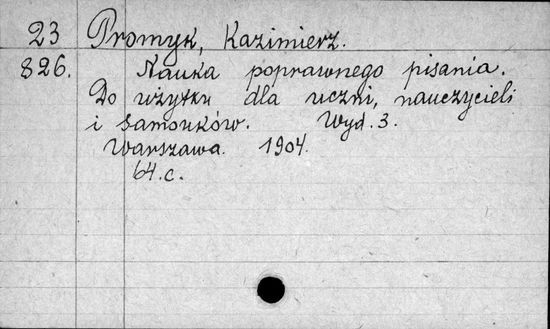 23 Promyk, Kazimierz.
826. Nauka poprawnego pisania.
Do użytku dla uczni, nauczycieli
i samouków. Wyd. 3.
Warszawa. 1904.
64.c.